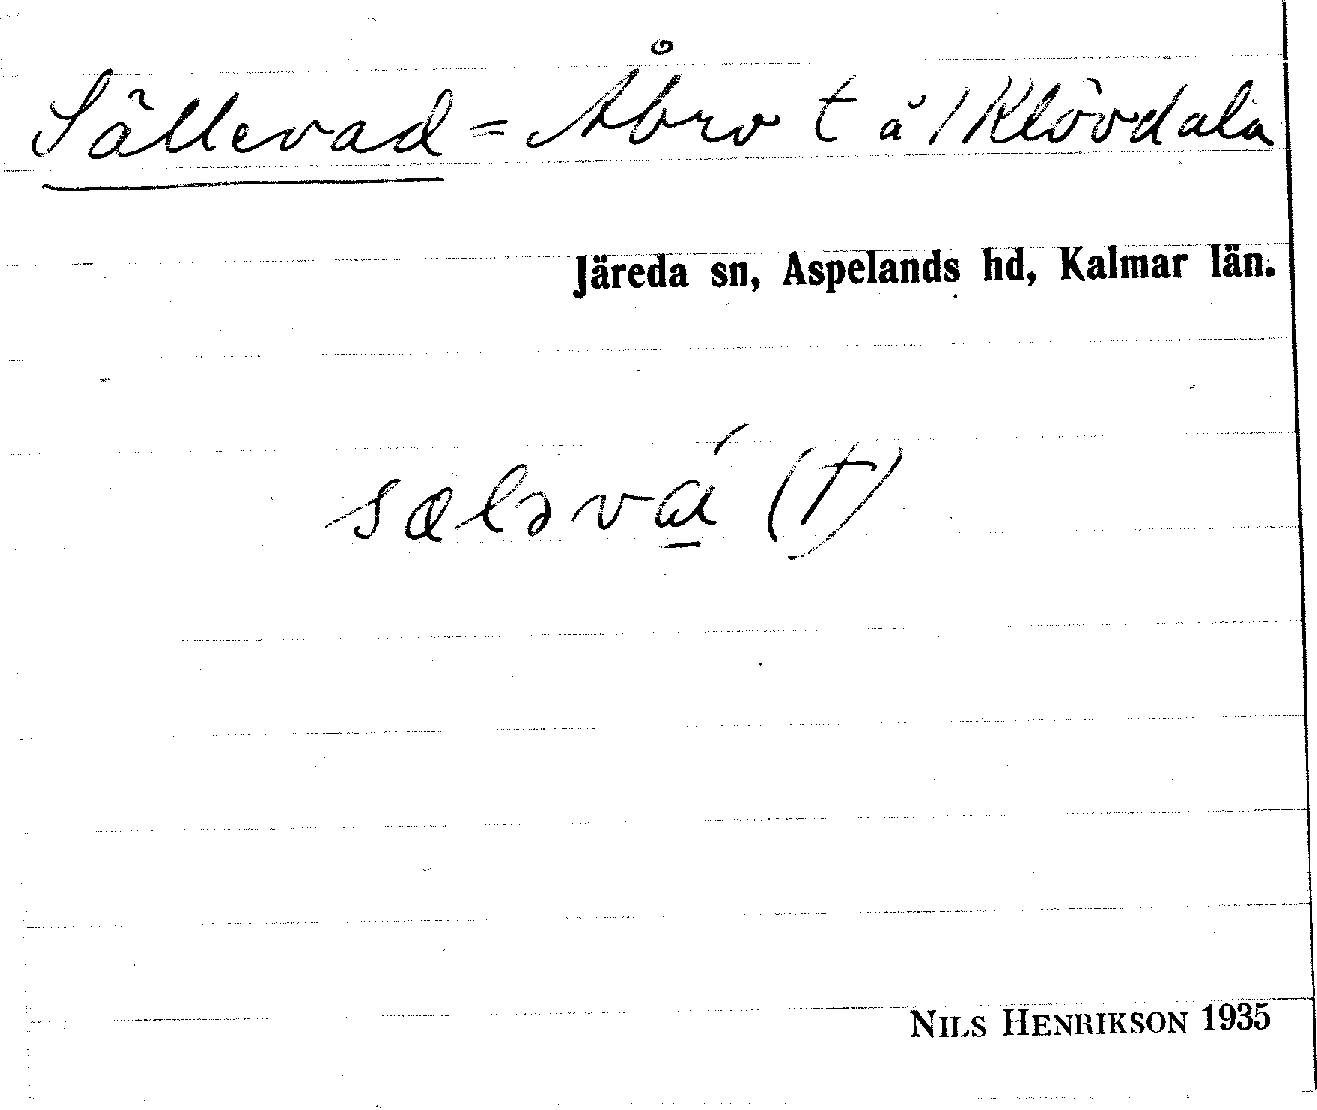 Sällevad = Åbro t å 1 Klövdala
Järeda sn, Aspelands hd, Kalmar län.
sælsvá (t)
NILS HENRIKSON 1935